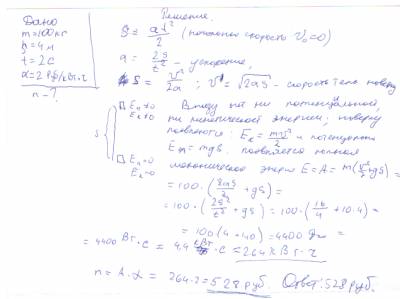 Решение.
Дано
m=100кг
h=4м
t=2с
α=2 Руб/кВт·ч
n-?
S = at²/2 (начальная скорость V₀=0)
a = 2S/t² - ускорение,
S = V²/2a ; V = √2aS - скорость тела наверху
S
Eп ≠0
Eк ≠0
Внизу нет ни потенциальной,
ни кинетической энергии; наверху
появляются: Eк = mV²/2 и потенциальная
Eп = mgS. появляется полная
Eп =0
Eк =0
механическая энергия E=A= m(V²/2+gS)=
= 100·(2aS/2 + gS)=
= 100·(2S²/t² + gS) = 100·(16/4 + 10·4)=
= 100(4+40) = 4400 Дж =
= 4400 Вт·с = 4,4 кВт·с = 264 кВт·ч
n = A·α = 264·2 = 528 руб. Ответ: 528 руб.